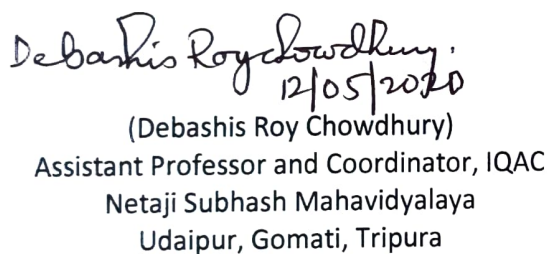 Debashis Roychowdhury.
12/05/2020
(Debashis Roy Chowdhury)
Assistant Professor and Coordinator, IQAC
Netaji Subhash Mahavidyalaya
Udaipur, Gomati, Tripura